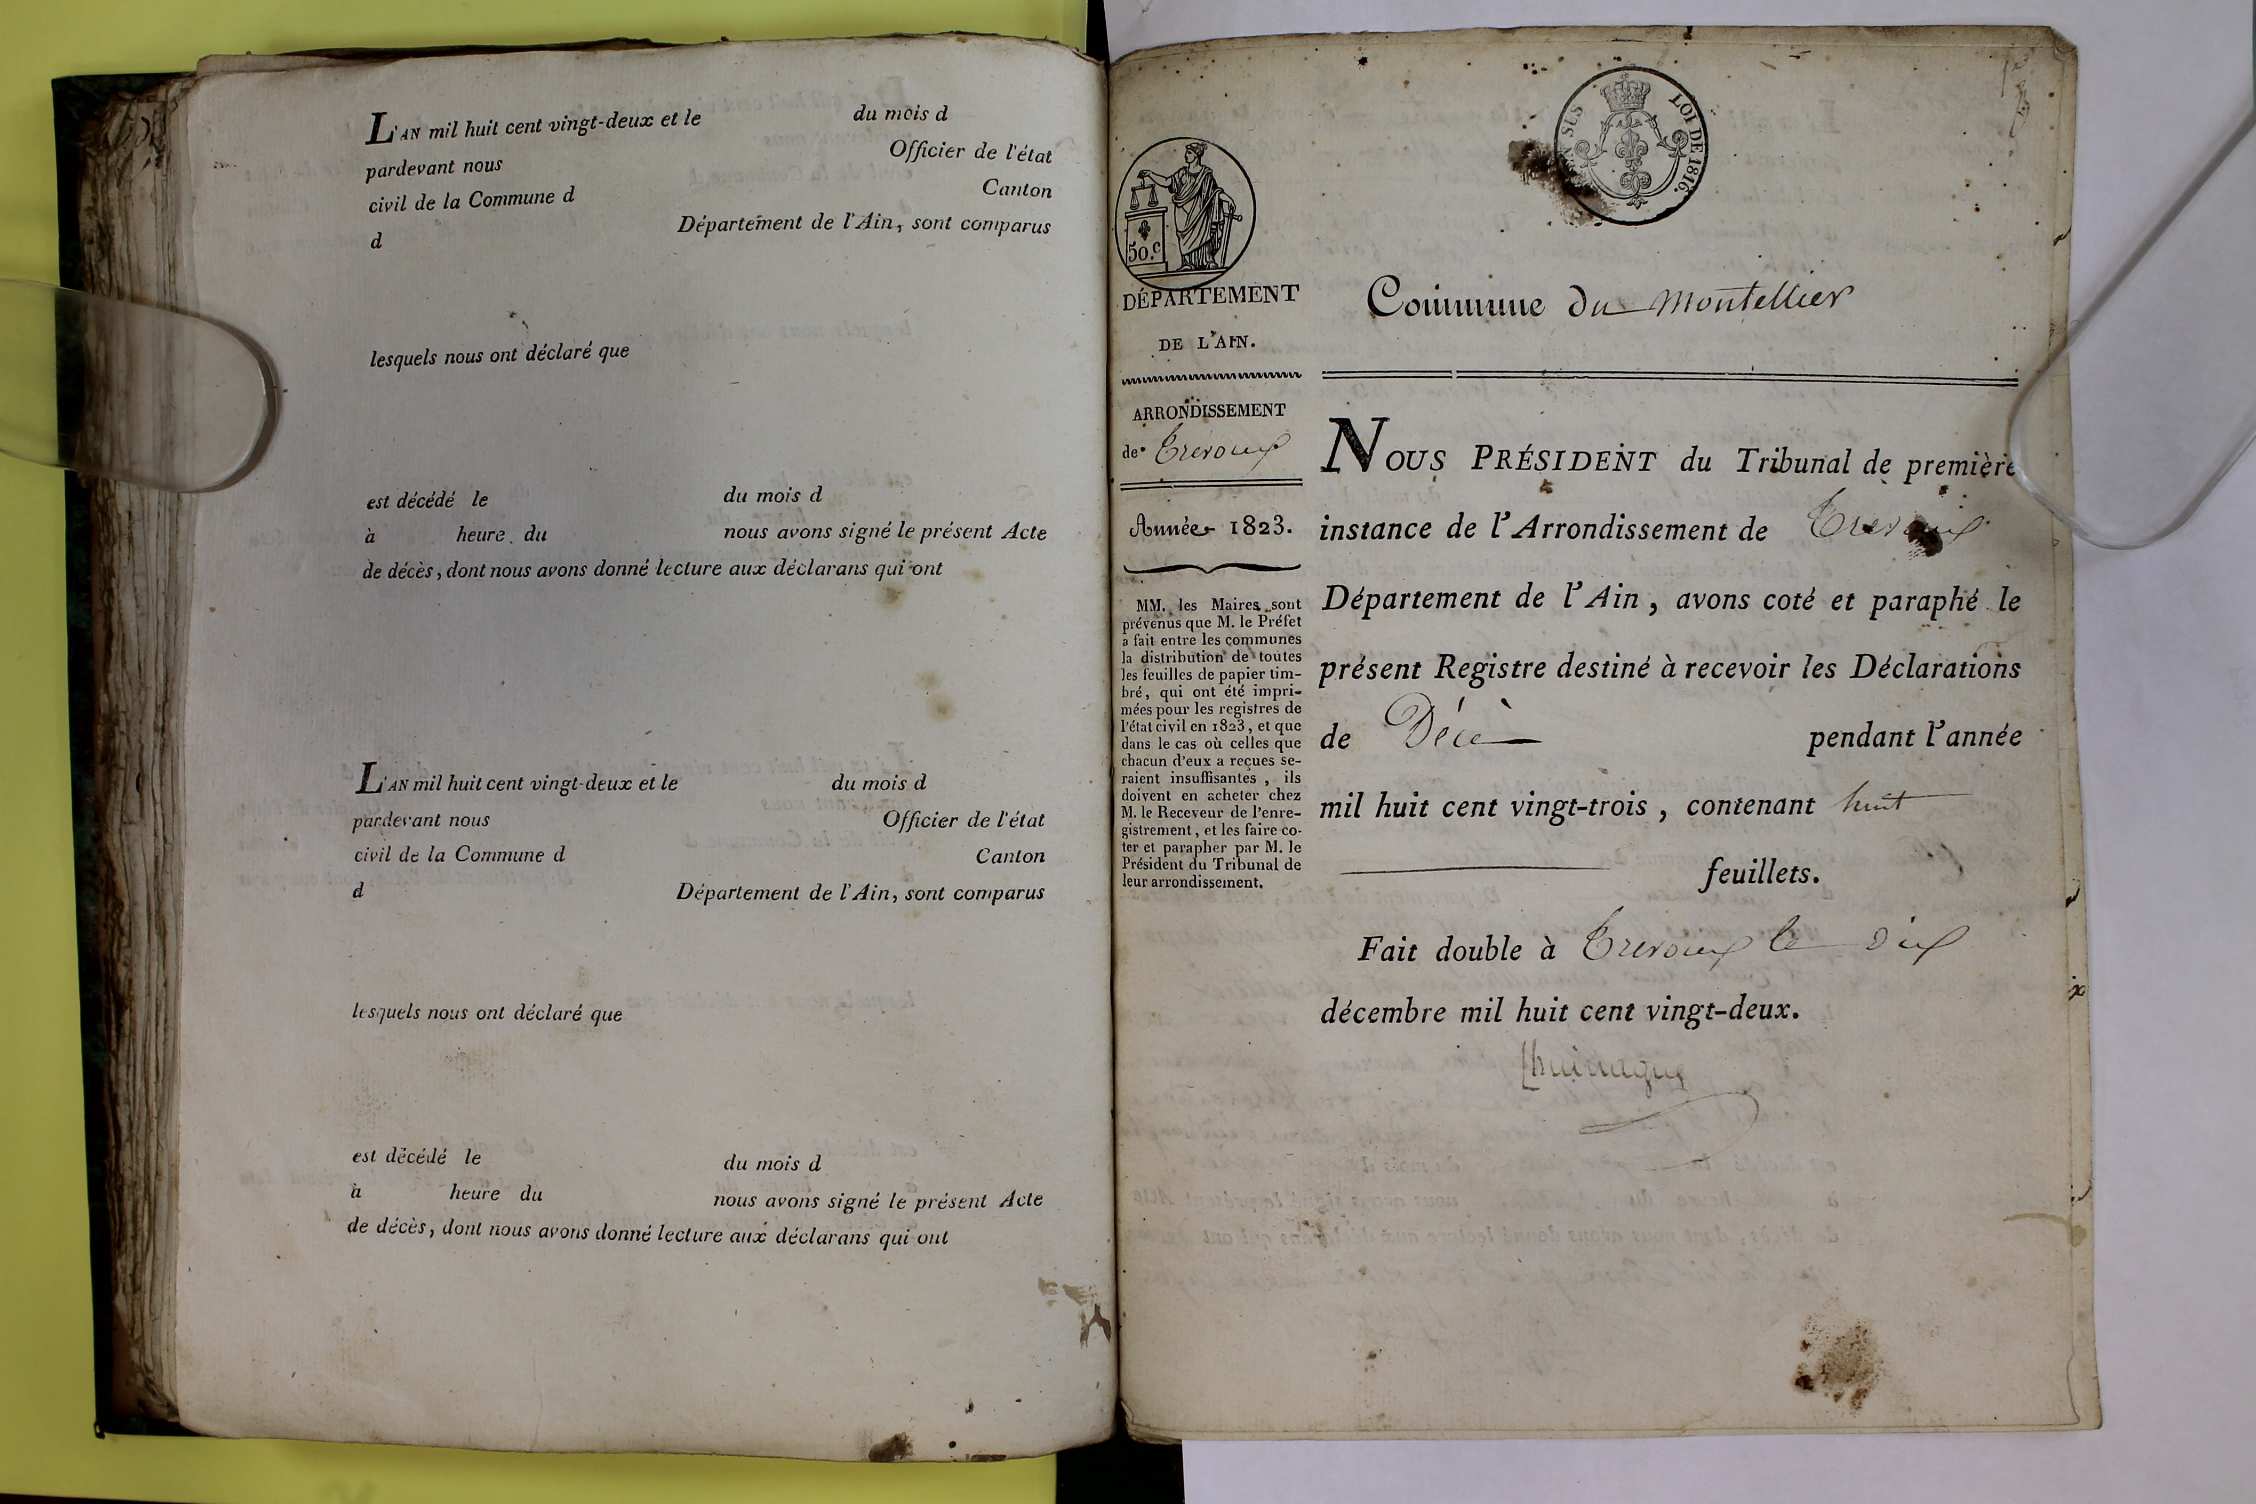 L'AN mil huit cent vingt-deux et le du mois d
pardevant nous Officier de l'état
civil de la Commune d Canton
d Département de l'Ain, sont comparus
lesquels nous ont déclaré que
est décédé le du mois d
à heure du nous avons signé le présent Acte
de décès, dont nous avons donné lecture aux déclarans qui ont
L'AN mil huit cent vingt-deux et le du mois d
pardevant nous Officier de l'état
civil de la Commune d Canton
d Département de l'Ain, sont comparus
lesquels nous ont déclaré que
est décédé le du mois d
à heure du nous avons signé le présent Acte
de décès, dont nous avons donné lecture aux déclarans qui ont
50.c
DÉPARTEMENT
DE L'AIN.
ARRONDISSEMENT
de Trevoux
Année 1823.
MM. les Maires sont
prévenus que M. le Préfet
a fait entre les communes
la distribution de toutes
les feuilles de papier tim-
bré, qui ont été impri-
mées pour les registres de
l'état civil en 1823, et que
dans le cas où celles que
chacun d'eux a reçues se-
raient insuffisantes, ils
doivent en acheter chez
M. le Receveur de l'enre-
gistrement, et les faire co-
ter et parapher par M. le
Président du Tribunal de
leur arrondissement.
SUS LOI DE 1816.
Commune du Montellier
NOUS PRÉSIDENT du Tribunal de première
instance de l'Arrondissement de Trevoux
Département de l'Ain, avons coté et paraphé le
présent Registre destiné à recevoir les Déclarations
de Décè pendant l'année
mil huit cent vingt-trois, contenant huit
feuillets.
Fait double à Trevoux le dix
décembre mil huit cent vingt-deux.